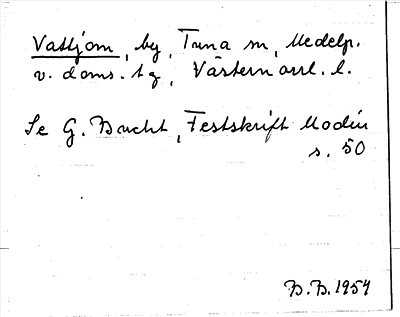 Vattjom, by, Tuna sn, Medelp.
v. doms. tg, Västernorrl. l.
Se G. Bucht, Festskrift Modin
s. 50
B.B. 1954